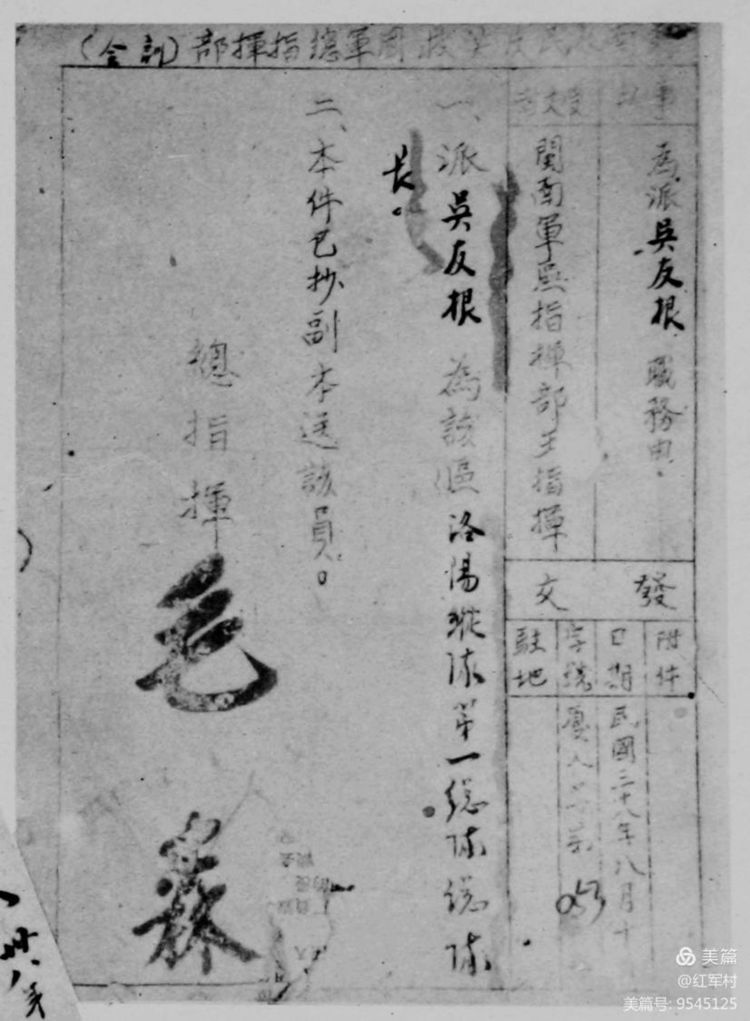 民 軍總指揮部(訓令)
事由
為派吳友根職務由.
受文者
閩南軍區指揮部王指揮
發文
附件
日期 民國三十八年八月十
字號
駐地
一、派吳友根為該區洛陽縱隊第一總隊總隊
長。
二、本件已抄副本送該員。
總指揮
毛森
美篇
@红军村
美篇号: 9545125